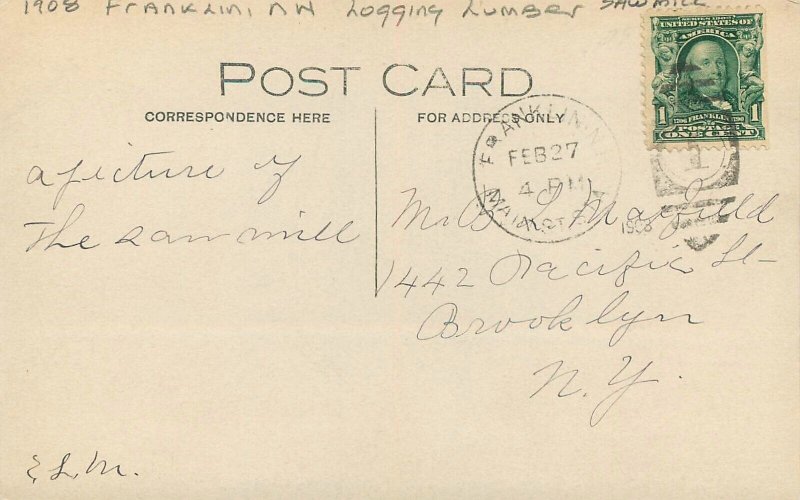 1908 FRANKLIN, NH Logging Lumber SAWMILL
POST CARD
CORRESPONDENCE HERE
FOR ADDRESS ONLY
SERIES 1902
UNITED STATES OF
AMERICA
1 FRANKLIN 1
POSTAGE
ONE CENT
FRANKLIN, N.
FEB 27
4 PM
MAIN
1908
1
a picture of
the saw mill
E. L. M.
Mr. B. L.
1442 Pacific St-
Brooklyn
N. Y.